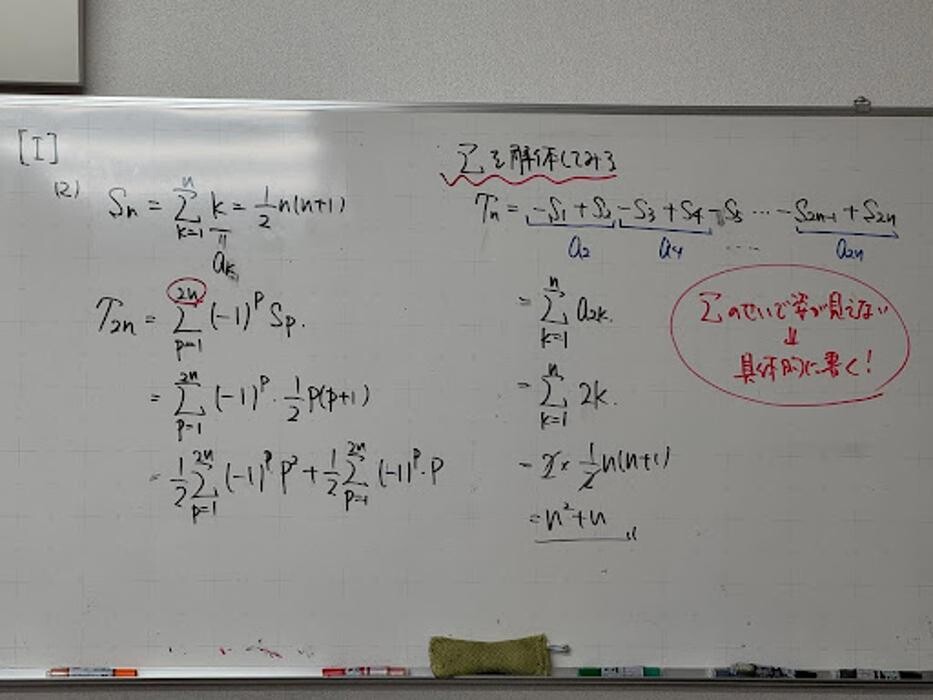 [I]
(2) Sn = Σ[k=1→n] k = 1/2 n(n+1)
ak
T2n = Σ[p=1→2n] (-1)^p Sp.
= Σ[p=1→2n] (-1)^p · 1/2 p(p+1)
= 1/2 Σ[p=1→2n] (-1)^p p² + 1/2 Σ[p=1→2n] (-1)^p · p
Σを解体してみる
Tn = -S1 + S2 - S3 + S4 - S5 … - S2n-1 + S2n
a2 a4 …. a2n
= Σ[k=1→n] a2k.
= Σ[k=1→n] 2k.
= 2 × 1/2 n(n+1)
= n² + n 〃
Σのせいで姿が見えない
↓
具体的に書く!